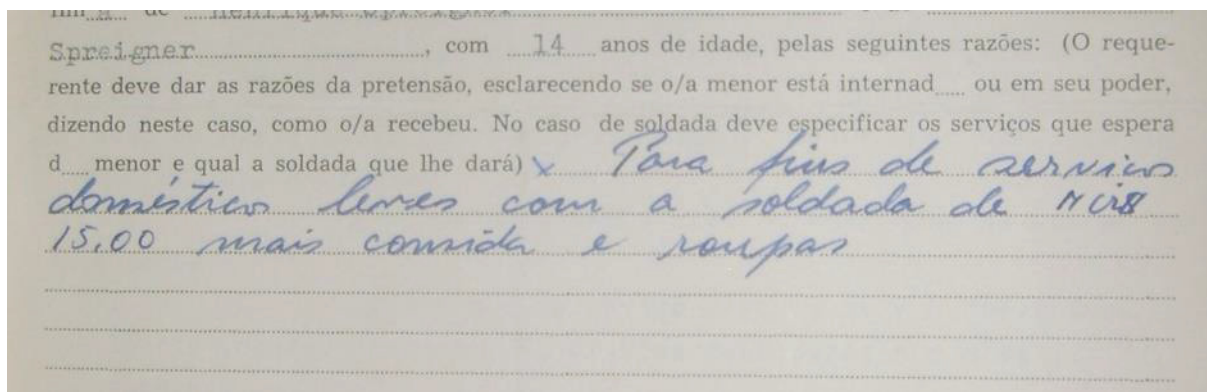 de Henrique Spreigner
Spreigner, com 14 anos de idade, pelas seguintes razões: (O reque-
rente deve dar as razões da pretensão, esclarecendo se o/a menor está internad ou em seu poder,
dizendo neste caso, como o/a recebeu. No caso de soldada deve especificar os serviços que espera
d menor e qual a soldada que lhe dará) x Para fins de serviços
domésticos leves com a soldada de
15,00 mais comida e roupas